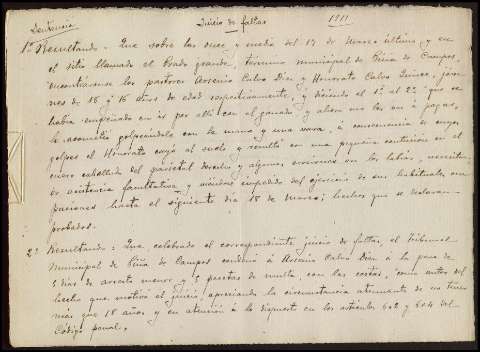 Sentencia
Juicio de faltas 1911
1º Resultando = Que sobre las once y media del 17 de Marzo último, y en
el sitio llamado el Prado grande, término municipal de Piña de Campos,
encontráronse los pastores Arsenio Calvo Diez y Honorato Calvo, jóve-
nes de 18 y 16 años de edad respectivamente, y diciendo el 1º al 2º que se
había empeñado en ir por allí con el ganado y ahora me las vas á pagar,
le acometió golpeándole con la mano y una vara, á consecuencia de cuyos
golpes el Honorato cayó al suelo y resultó con una pequeña contusión en el
cuero cabelludo del parietal derecho y algunas erosiones en los labios,
asistencia facultativa y impedido del ejercicio de sus habituales ocu-
paciones hasta el siguiente día 18 de Marzo; hechos que se declaran
probados.
2º Resultando = Que celebrado el correspondiente juicio de faltas, el Tribunal
Municipal de Piña de Campos condenó á Arsenio Calvo Diez á la pena de
5 días de arresto menor y 5 pesetas de multa, con las costas, como autor del
hecho que motivó el juicio apreciando la circunstancia atenuante de no tener
más que 18 años y en atención á lo dispuesto en los artículos 602 y 604 del
Código penal.